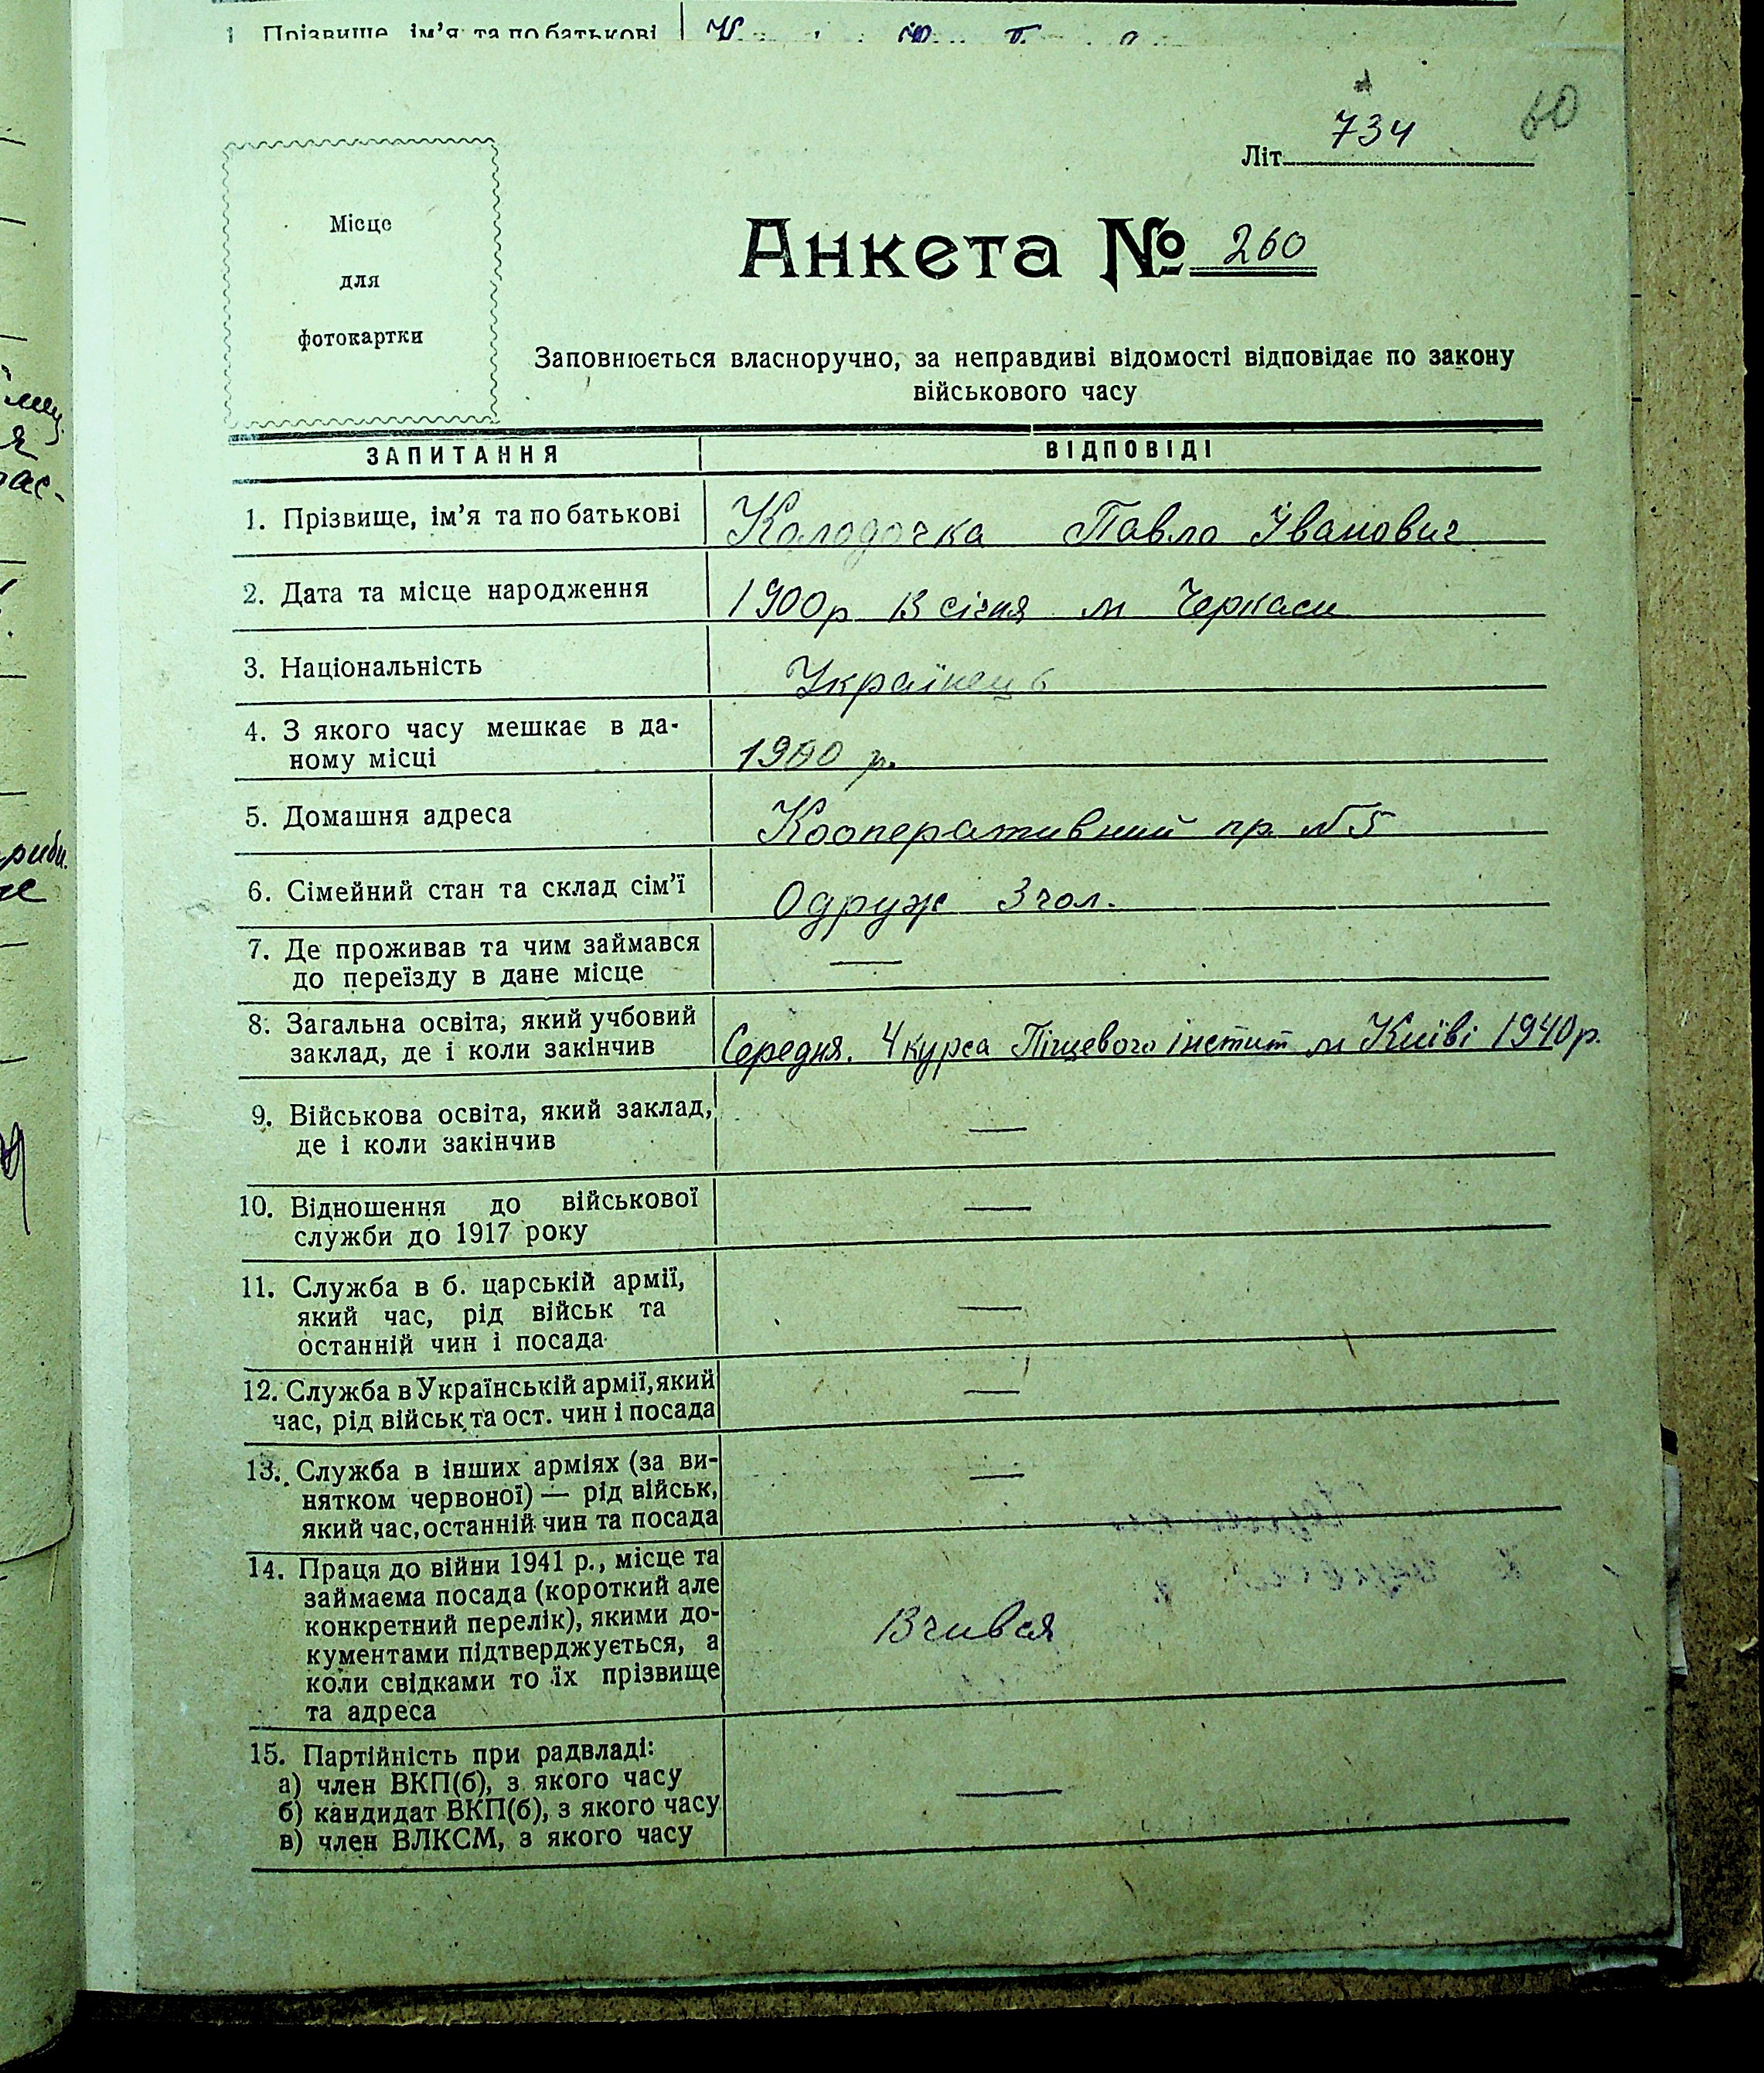 1 Прізвище, ім’я та по батькові
60
734
Літ.
Місце
для
фотокартки
Анкета № 260
Заповнюється власноручно, за неправдиві відомості відповідає по закону
військового часу
ЗАПИТАННЯ ВІДПОВІДІ
1. Прізвище, ім’я та по батькові Колодочка Павло Іванович
2. Дата та місце народження 1900р 13 січня м Черкаси
3. Національність Українець
4. З якого часу мешкає в да-
ному місці 1900 р.
5. Домашня адреса Кооперативний пр. №5
6. Сімейний стан та склад сім’ї Одруж 3 чол.
7. Де проживав та чим займався
до переїзду в дане місце —
8. Загальна освіта, який учбовий
заклад, де і коли закінчив Середня. 4 курса Піщевого інститут м Київі 1940р.
9. Військова освіта, який заклад,
де і коли закінчив —
10. Відношення до військової
служби до 1917 року —
11. Служба в б. царській армії,
який час, рід військ та
останній чин і посада —
12. Служба в Українській армії, який
час, рід військ та ост. чин і посада —
13. Служба в інших арміях (за ви-
нятком червоної) — рід військ,
який час, останній чин та посада —
14. Праця до війни 1941 р., місце та
займаєма посада (короткий але
конкретний перелік), якими до-
кументами підтверджується, а
коли свідками то їх прізвище
та адреса Вчився
15. Партійність при радвладі:
а) член ВКП(б), з якого часу
б) кандидат ВКП(б), з якого часу
в) член ВЛКСМ, з якого часу —